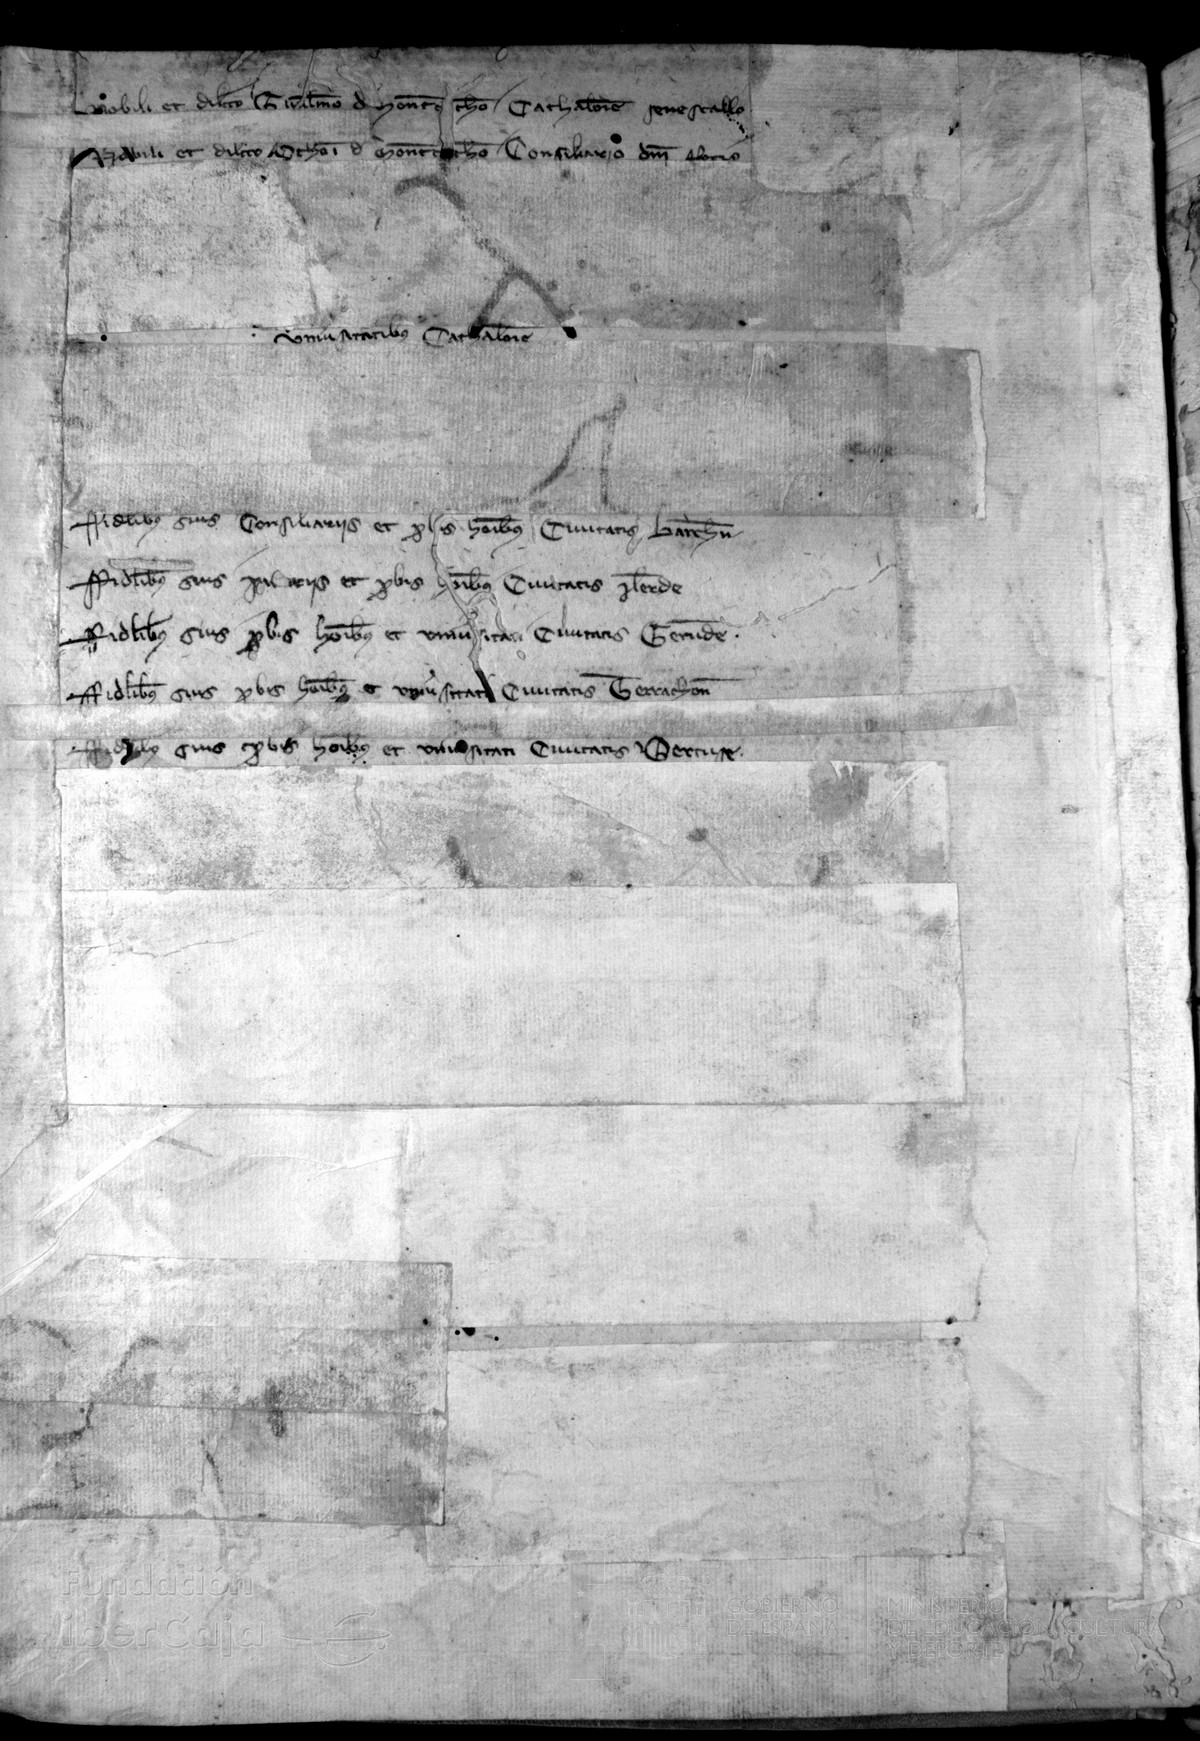 Nobili et dilco Guillmo d Montecho Cathalonie senescallo
Nobili et dilco Othoi d Montcho Consiliario dni
Univsitatibus Cathalonie
ffidelibus suis Consiliariis et pbis hoibus Civitatis barchn
ffidelibus suis paciariis et pbis hoibus Civitatis Ilerde
ffidelibus suis pbis hoibus et univsitati Civitatis Gerunde
ffidelibus suis pbis hoibus et univsitati Civitatis Terrachon
ffidelibus suis pbis hoibus et univsitati Civitatis Dertuse
Fundación
iberCaja
GOBIERNO
DE ESPAÑA
MINISTERIO
DE EDUCACIÓN, CULTURA
Y DEPORTE